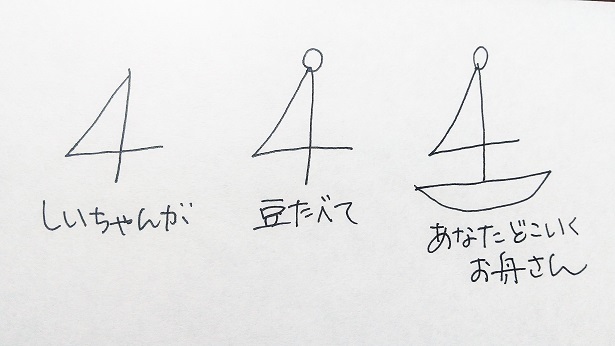 しいちゃんが
豆たべて
あなたどこいく
お舟さん